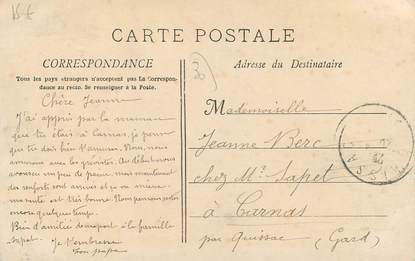 15 €
CARTE POSTALE
CORRESPONDANCE
Tous les pays étrangers n'acceptent pas la Correspon-
dance au recto. Se renseigner à la Poste.
Chère Jeanne
J'ai appris par ta maman
que tu étais à Carnas, je pense
que tu dois bien t'amuser. Nous, nous
amusons avec les grévistes. Au début nous
avons eu un peu de peine, mais maintenant
des renforts sont arrivés et ça marche
mais est très bonne. Nous pensons
encore quelque temps.
Bien d'amitiés de ma part à la famille
Sapet. Je t'embrasse
Ton papa
30
Adresse du Destinataire
Mademoiselle
Jeanne Berc
chez Mr Sapet
à Carnas
par Quissac (Gard)